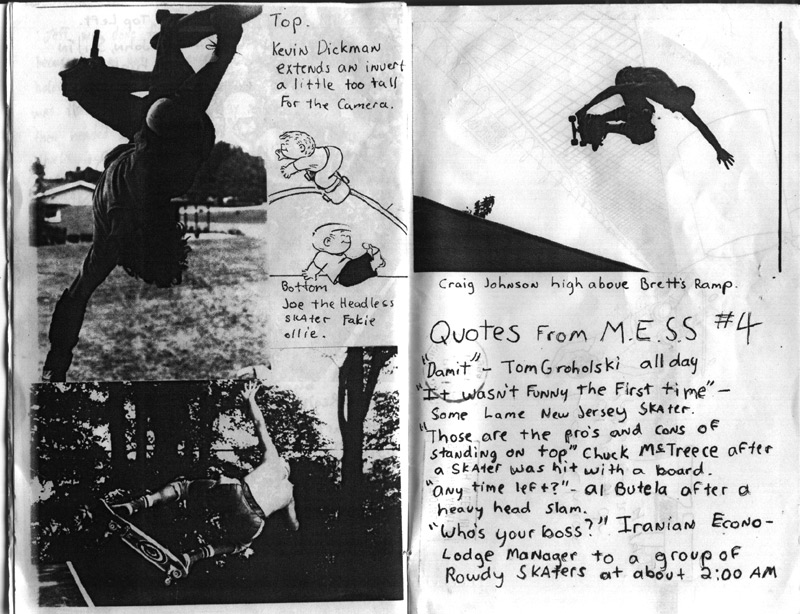 Top.
Kevin Dickman
extends an invert
a little too tall
For the Camera.
Bottom
Joe the Headless
Skater Fakie
ollie.
Craig Johnson high above Brett's Ramp.
Quotes From M.E.S.S #4
"Damit" - Tom Groholski all day
"It wasn't Funny the First time" -
Some Lame New Jersey Skater.
"Those are the pro's and cons of
standing on top" Chuck McTreece after
a Skater was hit with a board.
"any time left?" - al Butela after a
heavy head slam.
"Who's your boss?" Iranian Econo-
Lodge Manager to a group of
Rowdy Skaters at about 2:00 AM